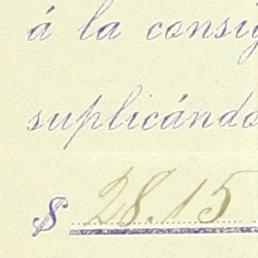 á la consig
suplicándo
$ 28.15